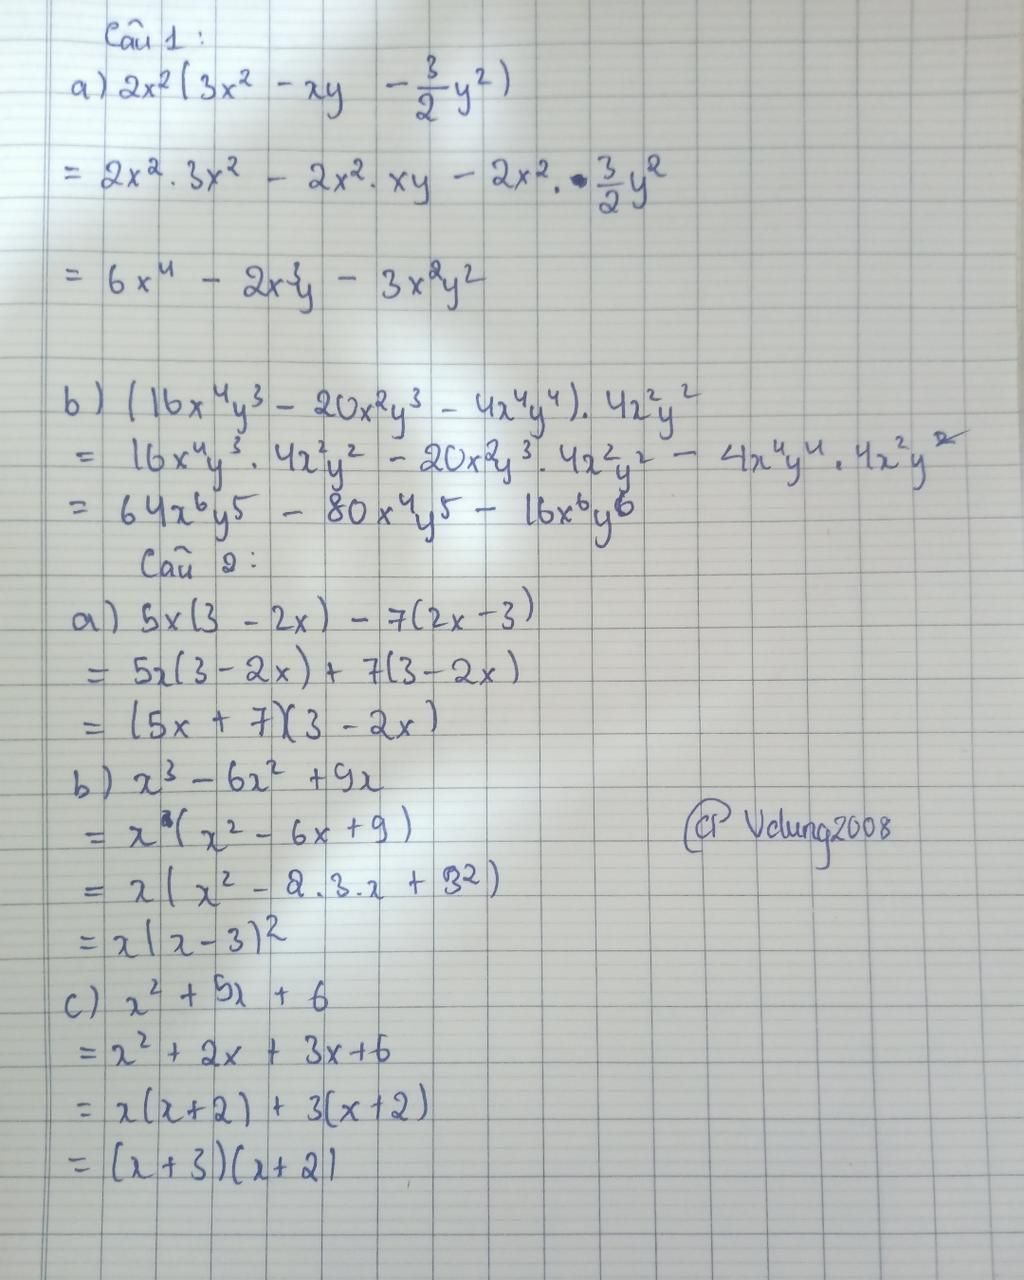 Câu 1:
a) 2x²(3x² - xy - 3/2 y²)
= 2x² . 3x² - 2x² . xy - 2x² . 3/2 y²
= 6x⁴ - 2x³y - 3x²y²
b) (16x⁴y³ - 20x²y³ - 4x⁴y⁴) . 4x²y²
= 16x⁴y³ . 4x²y² - 20x²y³ . 4x²y² - 4x⁴y⁴ . 4x²y²
= 64x⁶y⁵ - 80x⁴y⁵ - 16x⁶y⁶
Câu 2:
a) 5x(3 - 2x) - 7(2x - 3)
= 5x(3 - 2x) + 7(3 - 2x)
= (5x + 7)(3 - 2x)
b) x³ - 6x² + 9x
= x(x² - 6x + 9)
Vdung2008
= x(x² - 2.3.x + 3²)
= x(x - 3)²
c) x² + 5x + 6
= x² + 2x + 3x + 6
= x(x + 2) + 3(x + 2)
= (x + 3)(x + 2)